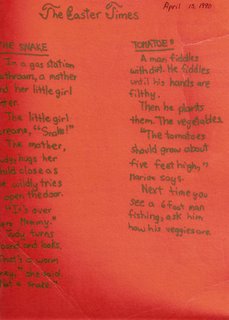 The Easter Times
April 13, 1990
THE SNAKE
In a gas station
bathroom, a mother
and her little girl
enter.
The little girl
screams, "Snake!"
The mother,
Judy, hugs her
child close as
she wildly tries
to open the door.
"It's over
there Mommy."
Judy turns
around and looks.
"That's a worm
honey," she said.
"Not a snake."
TOMATOES
A man fiddles
with dirt. He fiddles
until his hands are
filthy.
Then he plants
them. The vegetables.
"The tomatoes
should grow about
five feet high,"
Marion says.
Next time you
see a 6 foot man
fishing, ask him
how his veggies are.